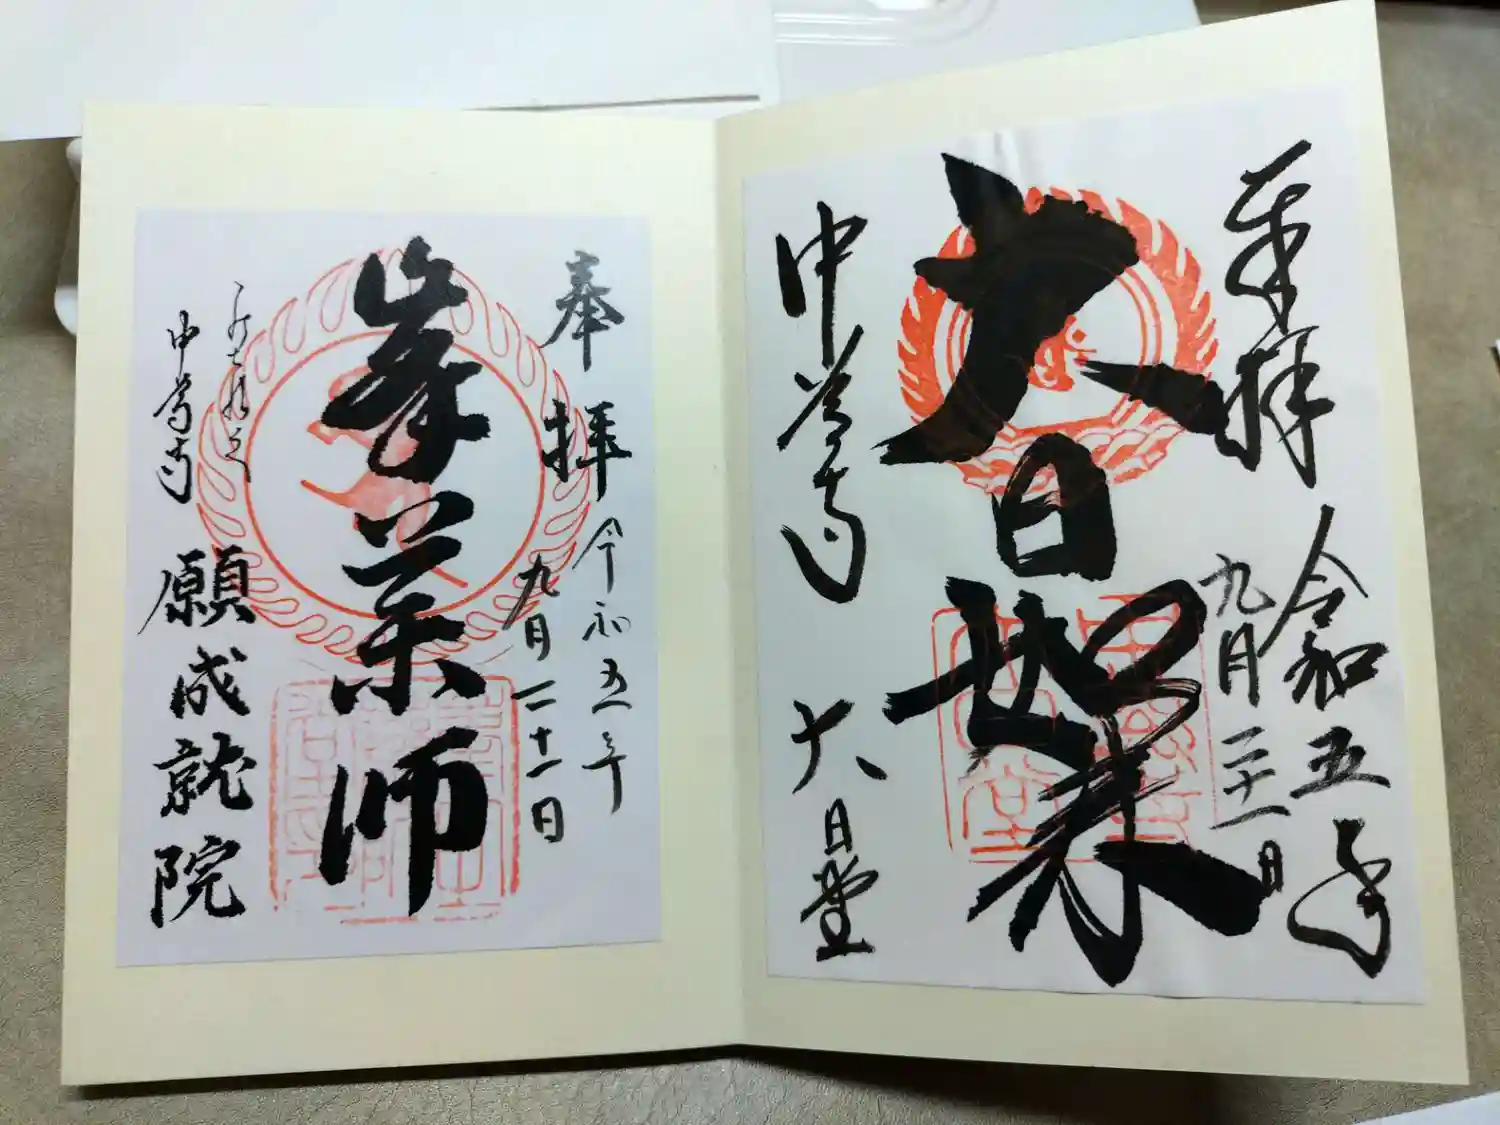 奉拝
令和五年
九月二十一日
大日如来
中尊寺
大日堂
奉拝
令和五年
九月二十一日
峯薬师
中尊寺
願成就院